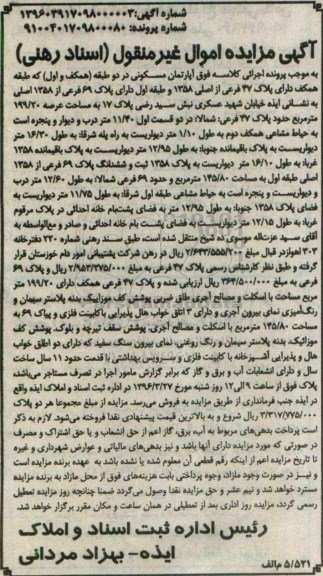 شماره آگهی: ۱۳۹۶۰۳۹۱۷۰۹۸۰۰۰۰۰۳
شماره پرونده: ۹۱۰۰۴۰۱۷۰۹۸۰۰۰۸۰
آگهی مزایده اموال غیرمنقول (اسناد رهنی)
به موجب پرونده اجرائی کلاسه فوق آپارتمان مسکونی در دو طبقه (همکف و اول) که طبقه
همکف دارای پلاک ۴۷ فرعی از اصلی ۱۳۵۸ و طبقه اول دارای پلاک ۶۹ فرعی از ۱۳۵۸ اصلی
به نشانی ایذه خیابان شهید عسکری نبش سید رضی پلاک ۱۷ به مساحت عرصه ۱۹۹/۲۰
مترمربع حدود پلاک ۴۷ فرعی: شمالا: در دو قسمت اول ۱۱/۴۰ متر درب و دیوار و پنجره است
به حیاط مشاعی همکف دوم به طول ۱/۱۰ متر دیواریست به راه پله شرقا: به طول ۱۶/۳۰ متر
دیواریست به پلاک باقیمانده جنوبا: به طول ۱۲/۹۵ متر دیواریست به پلاک باقیمانده ۱۳۵۸
غربا: به طول ۱۶/۱۰ متر دیواریست به پلاک ۱۳۵۸ ثبت و ششدانگ پلاک ۶۹ فرعی از ۱۳۵۸
اصلی طبقه اول به مساحت ۱۴۵/۸۰ مترمربع و حدود ۶۹ فرعی شمالا: به طول ۱۲/۶۰ متر درب
و دیواریست و پنجره است به حیاط مشاعی طبقه اول شرقا: به طول ۱۱/۷۵ متر دیواریست به
فضای پلاک ۱۳۵۸ جنوبا: به طول ۱۲/۹۵ متر به فضای پشت‌بام خانه احداثی در پلاک مرقوم
غربا: به طول ۱۲/۱۵ متر دیواریست به فضای پشت بام خانه احداثی و صادر و مع‌الواسطه به
آقای سید عزت‌اله موسوی ده شیخ منتقل شده است، طبق سند رهنی شماره ۲۲۰ دفترخانه
۳۰۳ اهواز در قبال مبلغ ۲/۶۳۳/۵۵۵/۲۰۰ ریال در رهن شرکت پشتیبانی امور دام خوزستان قرار
گرفته و طبق نظر کارشناس رسمی پلاک ۴۷ فرعی به مبلغ ۲/۹۵۳/۲۷۵/۰۰۰ ریال و پلاک ۶۹
فرعی به مبلغ ۳۶۴/۵۰۰/۰۰۰ ریال ارزیابی شده و پلاک ۴۷ فرعی همکف دارای ۱۹۹/۲۰ متر
مربع مساحت با اسکلت و مصالح آجری طاق ضربی پوشش کف موزاییک بدنه پلاستر سیمان و
رنگ‌آمیزی نمای بیرون آجری و دارای ۳ اتاق خواب هال پذیرایی با کابینت فلزی و پلاک ۶۹ به
مساحت ۱۴۵/۸۰ مترمربع با اسکلت و مصالح آجری پوشش سقف تیرچه و بلوک، پوشش کف
موزائیک، بدنه پلاستر سیمان و رنگ روغنی، نمای بیرون سنگ سفید که دارای دو اطاق خواب
هال و پذیرایی آشپزخانه با کابینت فلزی و سرویس بهداشتی با قدمت حدود ۱۱ سال ساخت
سال و دارای انشعابات آب و برق و گاز که برابر گزارش مامور اجرا در تصرف مستاجر می‌باشد
پلاک فوق از ساعت ۹ الی ۱۲ روز شنبه مورخ ۱۳۹۶/۲/۲۷ در اداره ثبت اسناد و املاک ایذه واقع
در ایذه جنب فرمانداری از طریق مزایده به فروش می‌رسد. مزایده از مبلغ مجموعا هر دو پلاک
۳/۳۱۷/۷۷۵/۰۰۰ ریال شروع و به بالاترین قیمت پیشنهادی نقدا فروخته می‌شود. لازم به ذکر
است پرداخت بدهی‌های مربوط به آب، برق، گاز اعم از حق انشعاب و یا حق اشتراک و مصرف
در صورتی که مورد مزایده دارای آنها باشد و نیز بدهی‌های مالیاتی و عوارض شهرداری و غیره
تا تاریخ مزایده اعم از اینکه رقم قطعی آن معلوم شده یا نشده باشد به عهده برنده مزایده است
و نیز در صورت وجود مازاد، وجوه پرداختی بابت هزینه‌های فوق از محل مازاد به برنده مزایده
مسترد خواهد شد و نیم عشر و حق مزایده نقدا وصول می‌گردد ضمنا چنانچه روز مزایده تعطیل
رسمی گردد، مزایده روز اداری بعد از تعطیلی در همان ساعت و مکان مقرر برگزار خواهد شد.
رئیس اداره ثبت اسناد و املاک
ایذه- بهزاد مردانی
۵/۵۲۱ م‌الف